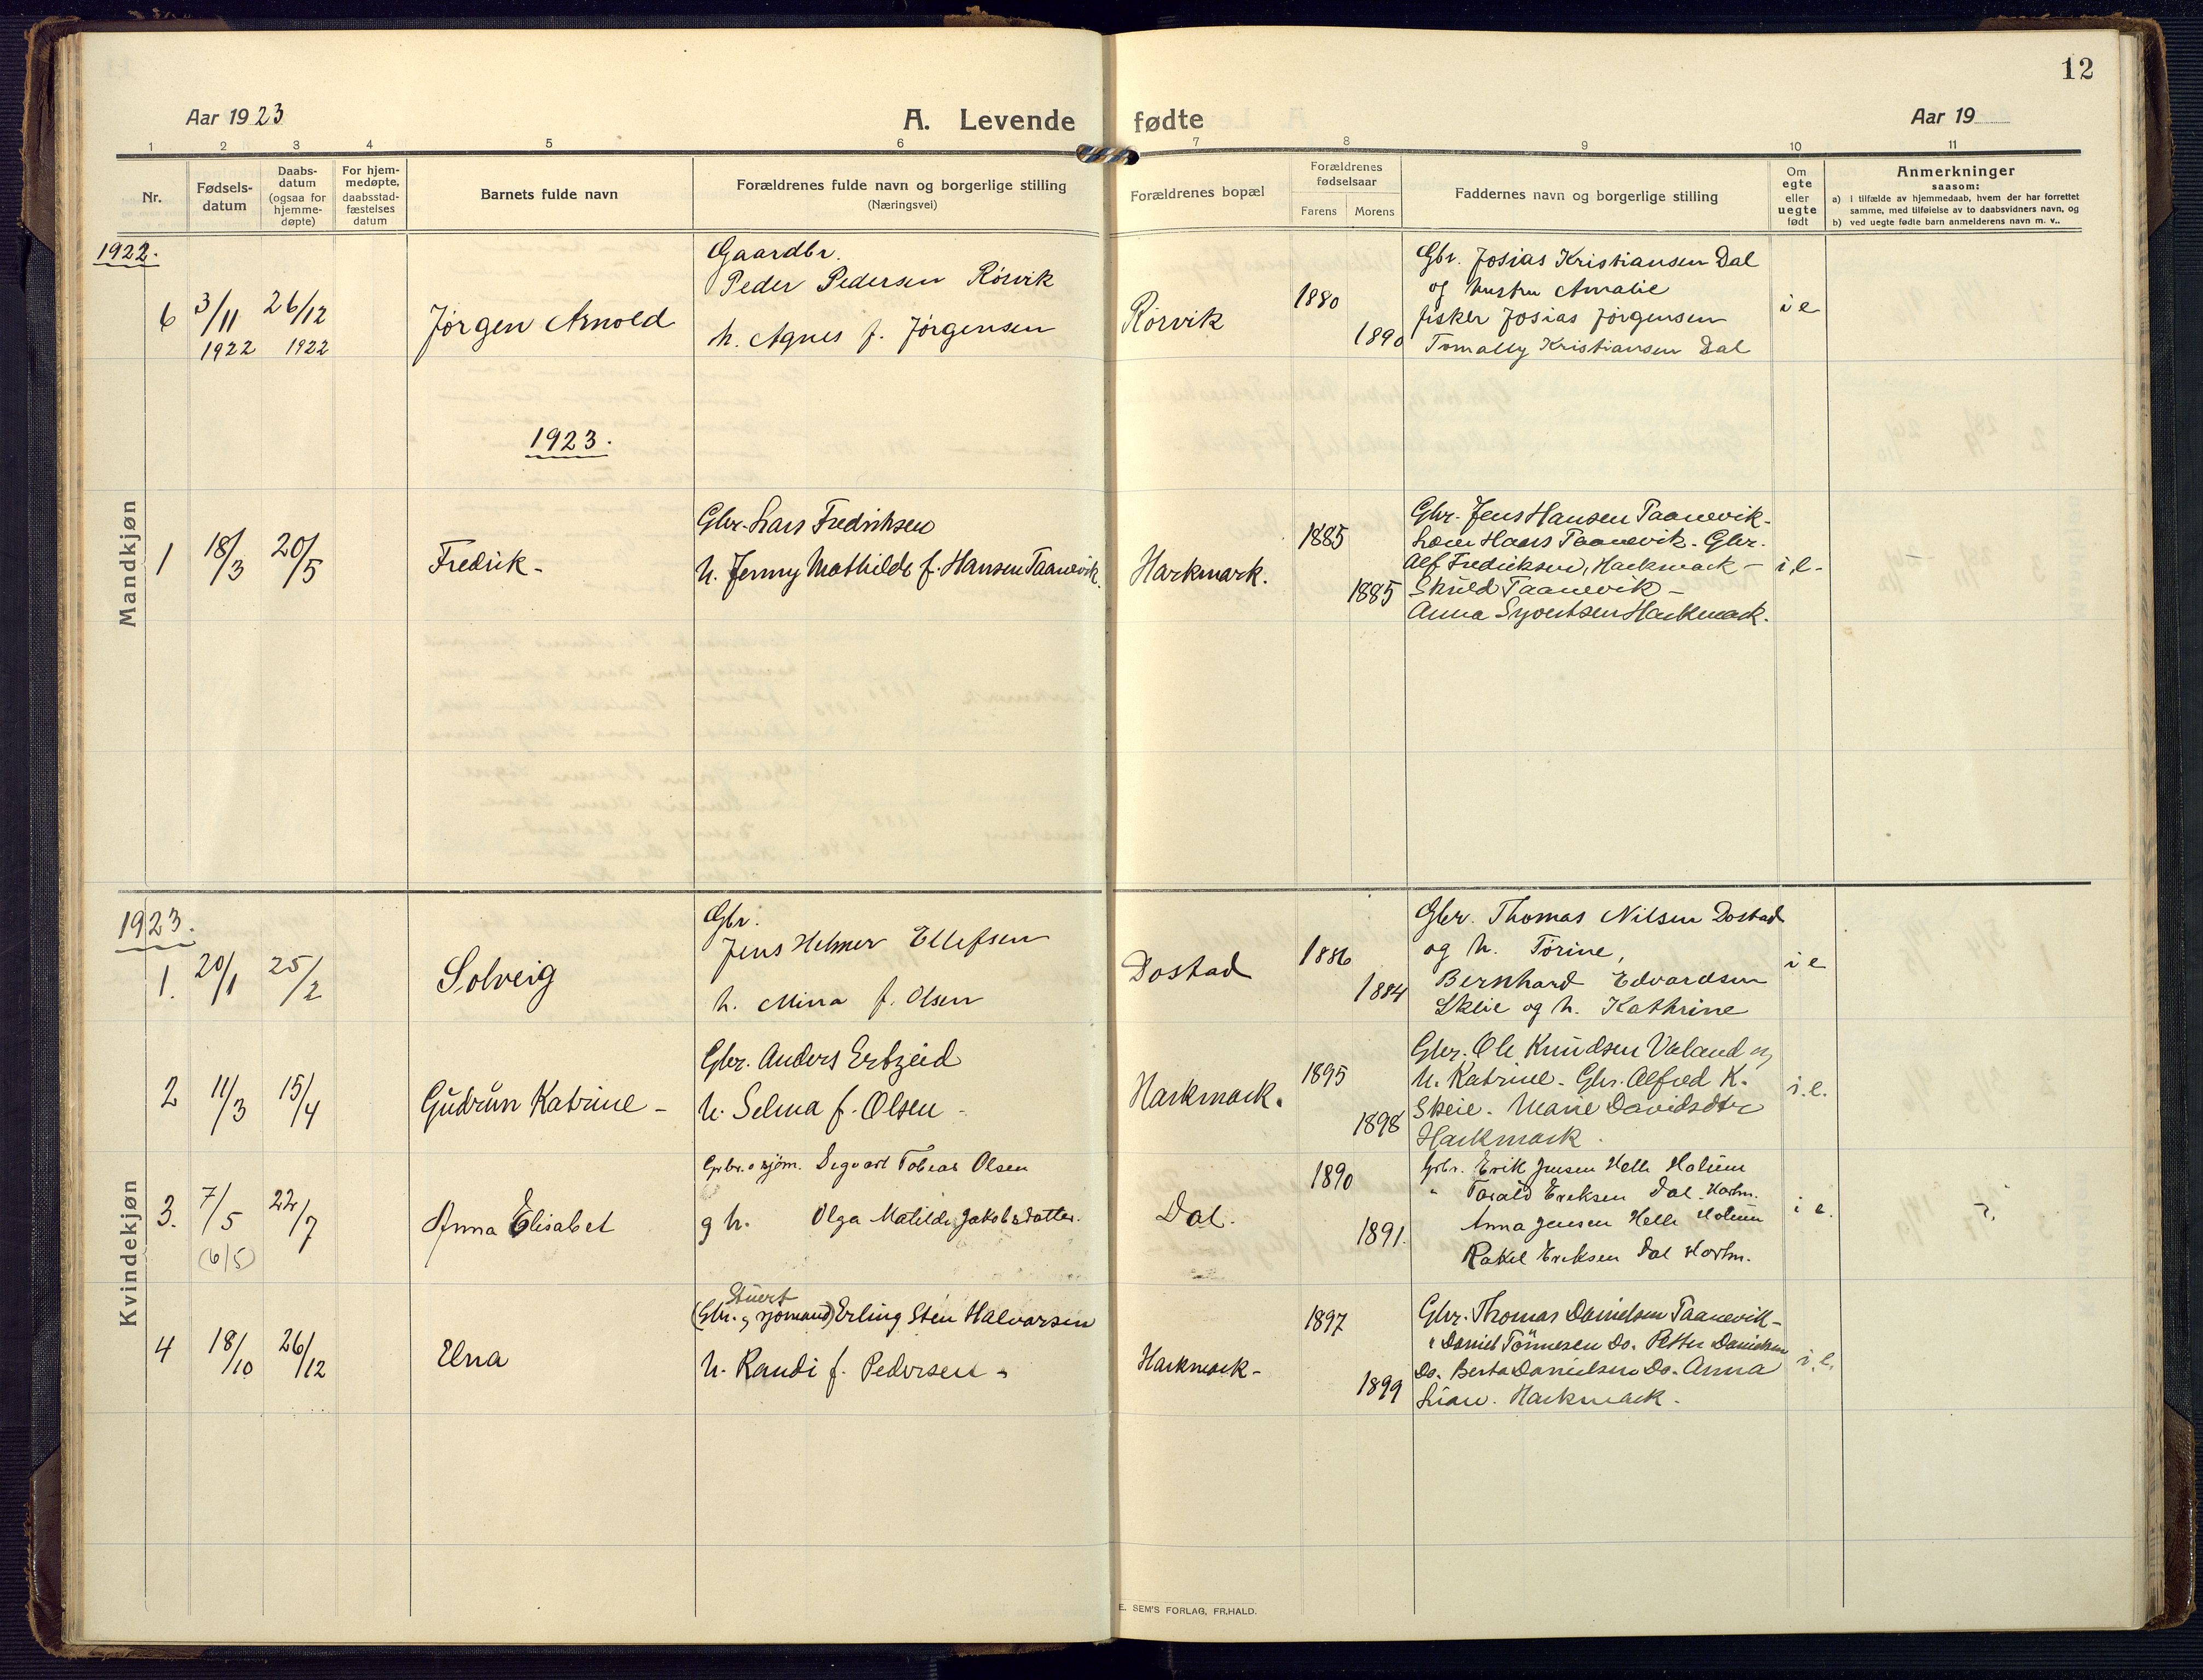 12
Aar 1923
A. Levende fødte
Aar 19
1 2 3 4 5 6 7 8 9 10 11
Nr.
Fødsels-
datum
Daabs-
datum
(ogsaa for
hjemme-
døpte)
For hjem-
medøpte,
daabsstad-
fæstelses
datum
Barnets fulde navn
Forældrenes fulde navn og borgerlige stilling
(Næringsvei)
Forældrenes bopæl
Forældrenes
fødselsaar
Farens Morens
Faddernes navn og borgerlige stilling
Om
egte
eller
uegte
født
Anmerkninger
saasom:
a) i tilfælde av hjemmedaab, hvem der har forrettet
samme, med tilføielse av to daabsvidners navn, og
b) ved uegte fødte barn anmelderens navn m. v..
Mandkjøn
1922.
6 3/11 1922 26/12 1922
Jørgen Arnold
Gaardbr.
Peder Pedersen Rösvik
h. Agnes f. Jørgensen
Rörvik
1880
1890
Gbr. Josias Kristiansen Dal
og hustru Amalie
fisker Josias Jørgensen
Kristiansen Dal
i e
1923.
1 18/3 20/5
Fredrik -
Gbr. Lars Fredriksen
h. Jenny Mathilde f. Hansen Taanevik.
Harkmark.
1885
1885
Gbr. Jens Hansen Taanevik-
Taanevik. Gbr.
Alf Fredriksen, Harkmark -
Skuld Taanevik -
Anna Syvertsen Harkmark.
i.e.-
Kvindekjøn
1923.
1. 20/1 25/2
Solveig
Gbr.
Jens Helmer Ellefsen
h. Mina f. Olsen
Dostad
1886
1884
Gbr. Thomas Nilsen Dostad
og h. Torine,
Bernhard Edvardsen
Skeie og h. Kathrine
i e
2 11/3 15/4
Gudrun Katrine -
Gbr. Anders Ertzeid
h. Selma f. Olsen -
Harkmark.
1895
1898
Gbr. Ole Knudsen Valand og
h. Katrine. Gbr. Alfred K.
Skeie. Marie Davidsdtr
Harkmark.
i.e.
3. 7/5 (6/5) 22/7
Anna Elisabet
Grbr. o sjøm. Segvart Tobias Olsen
g h. Olga Matilde Jakobsdatter.
Dal.
1890
1891.
Grbr. Erik Jensen Helle Holum
" Tarald Eriksen Dal. Harkm.
Anna Jensen Helle Holum
Rakel Eriksen Dal Harkm.
i e.
4 18/10 26/12
Elna
Stuert
(Gbr. og sjømand) Erling Sten Halvorsen
h. Randi f. Pedersen -
Harkmark-
1897
1899
Gbr. Thomas Danielsen Taanevik -
" Daniel Tönnesen Do. Petter Danielsen
Do. Berta Danielsen Do. Anna
Harkmark.
i.e.
E. SEM'S FORLAG, FR.HALD.